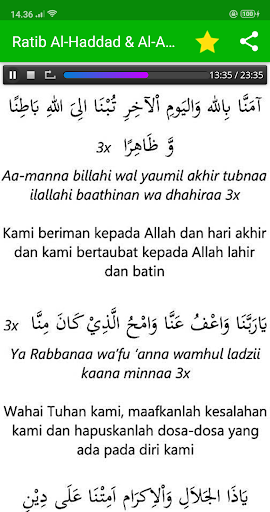 14.36
100
Ratib Al-Haddad & Al-A...
13:35 / 23:35
آمَنَّا بِاللهِ وَاليَومِ اْلآخِرِ تُبْنَا اِلَىَ اللهِ بَاطِنًا
وَّ ظَاهِرًا 3x
Aa-manna billahi wal yaumil akhir tubnaa
ilallahi baathinan wa dhahiraa 3x
Kami beriman kepada Allah dan hari akhir
dan kami bertaubat kepada Allah lahir
dan batin
يَارَبَّنَا وَاعْفُ عَنَّا وَامْحُ الَّذِيْ كَانَ مِنَّا 3x
Ya Rabbanaa wa'fu 'anna wamhul ladzii
kaana minnaa 3x
Wahai Tuhan kami, maafkanlah kesalahan
kami dan hapuskanlah dosa-dosa yang
ada pada diri kami
يَاذَا الجَلاَلِ وَاْلاِكرَامِ اَمِتْنَا عَلَى دِيْنِ